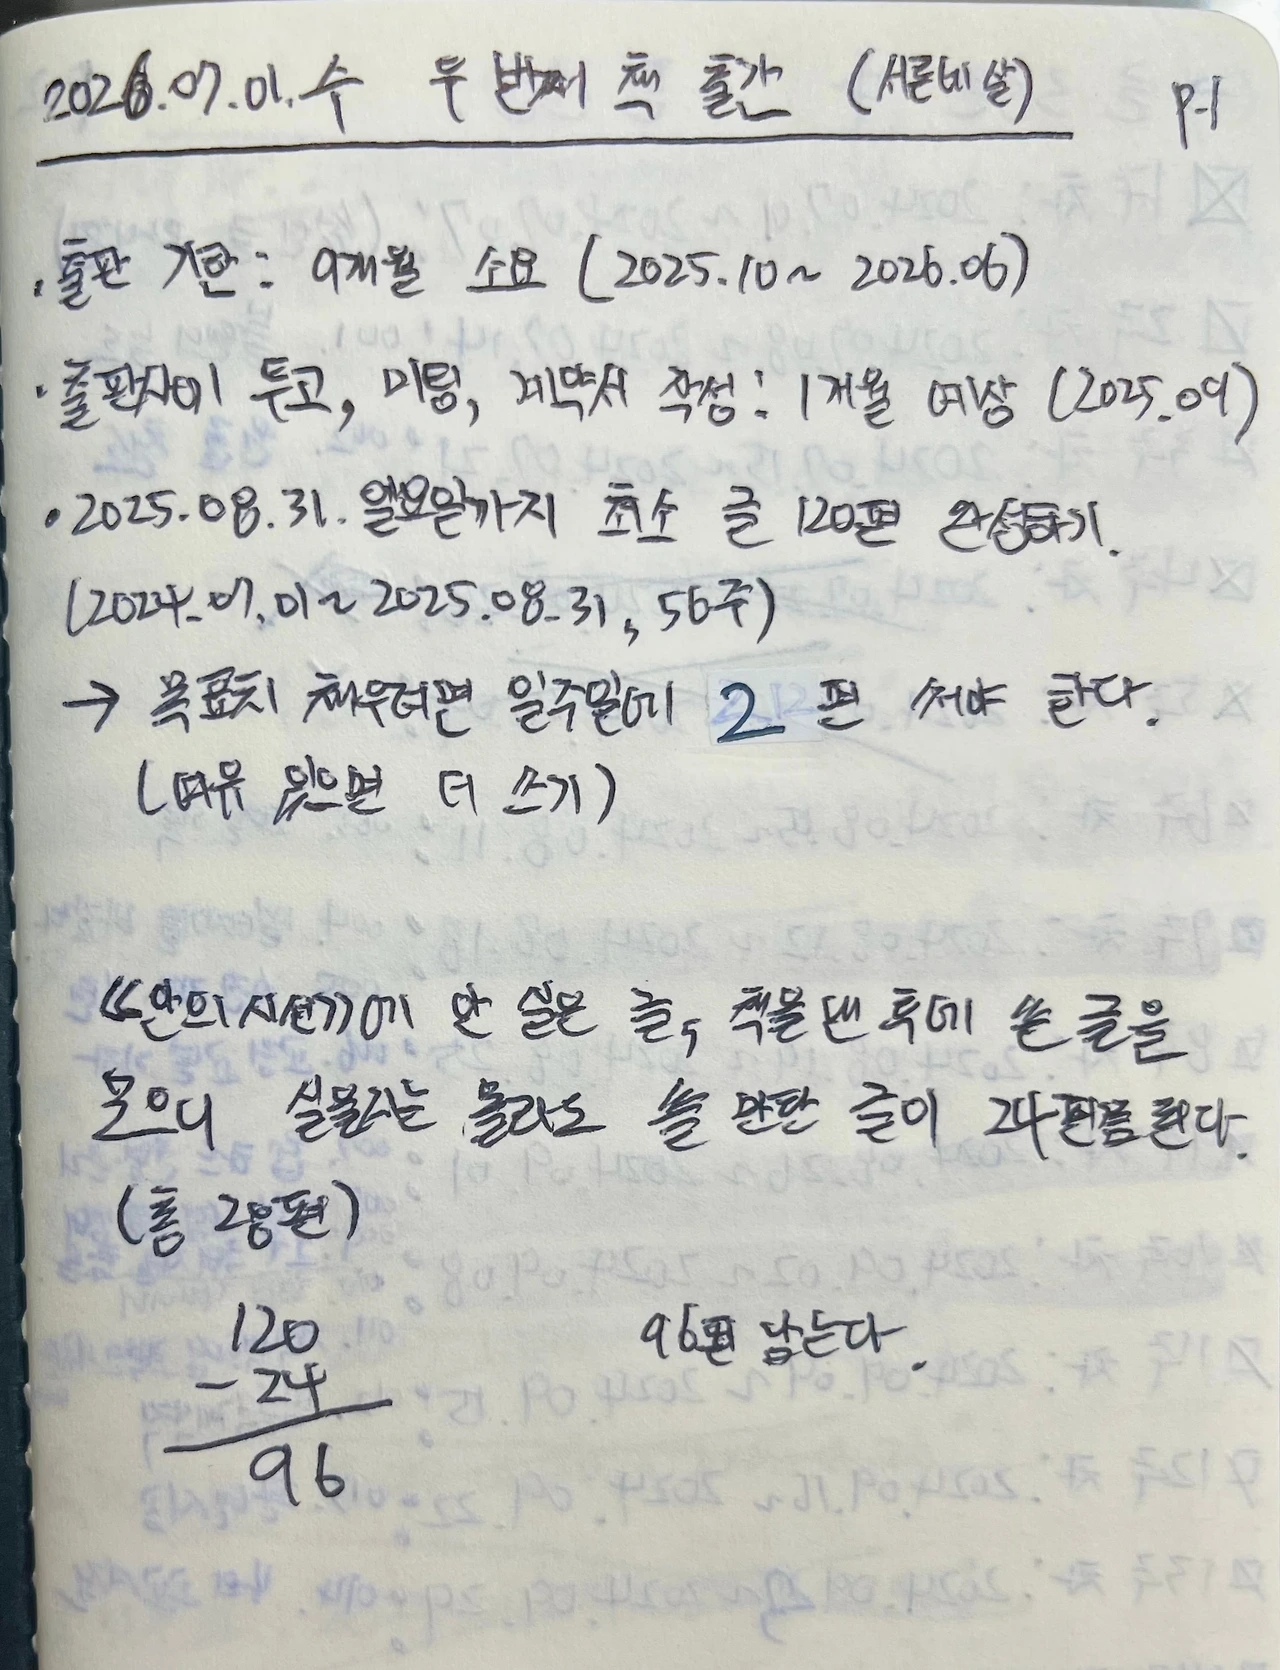 2026.07.01.수 두 번째 책 출간 (서른네 살) P.1
· 출판 기한: 9개월 소요 (2025.10~ 2026.06)
· 출판사에 투고, 미팅, 계약서 작성: 1개월 예상 (2025.09)
· 2025.08.31. 일요일까지 최소 글 120편 완성하기.
(2024.07.01~ 2025.08.31, 56주)
→ 목표치 채우려면 일주일에 2 편 써야 한다.
(여유 있으면 더 쓰기)
에 안 실은 글, 책을 낸 후에 쓴 글을
모으니 는 몰라도 쓸 만한 글이 24편쯤 된다.
(총 28편)
120
- 24
96
96편 남는다.